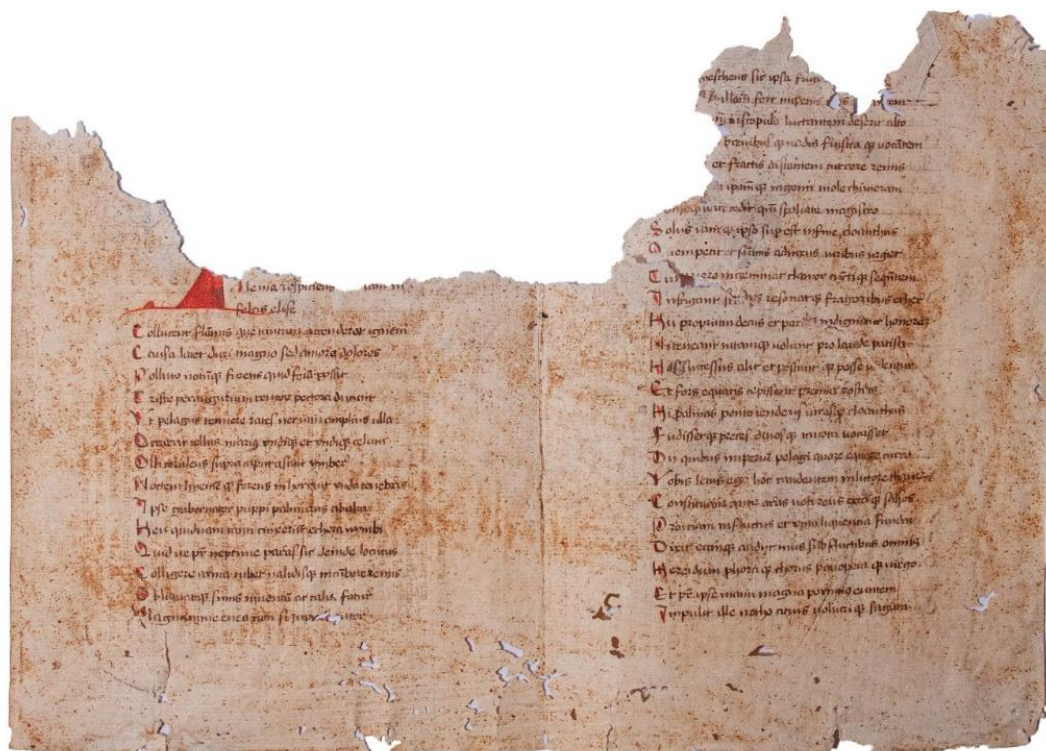 Menia respiciens iam in
felicis elise
Collucent flamis que tantum accenderat ignem
Causa latet duri magno sed amore dolores
Polluto notūq; furens quid fēīa possit
Triste per augurium teucror pectora ducunt
Vt pelagus tenuere rates nec iam amplius ulla
Occurrit tellus maria vndiq; et vndiq; celum
Olli ceruleus supra caput astitit ymber
Noctem hyemē q; ferens inhorruit vnda tenebris
Ipse gubernator puppi palinurus ab alta
Heu quidnam tanti cinxerūt ethera nimbi
Quid ue pr̄ neptune paras sic deinde locutus
Colligere arma iubet ualidisq; incūbere remis
Obliquatq; sinus in uentū ac talia fatur
Magnanime enea non si iupp auctor
mestheus sic ipsa fuga
illam fert impetus
in scopulo luctantem deserit alto
breuibus q; uadis frustra q; uocātem
et fractis discentem currere remis
ipamq; ingenti mole chimeram
cedit qm̄ spoliata magistro
Solus iamq; ipso sup est in fine cloanthus
Quem petit et sumis adnixus uiribus urget
Tum uero ingeminat clamor cūctiq; sequētem
Instigant studijs resonatq; fragoribus ether
Hii proprium decus et partū indignatur honorē
Ni teneant uitamq; uolunt pro laude pacisci
Hos successus alit et possunt q; posse uidentur
Et fors equatis cepissent premia rostris
Ni palmas ponto tendens utrasq; cloanthus
Fudissetq; preces diuos q; in uota uocasset
Dii quibus imperiū pelagi quorę equora curro
Vobis letus ego hoc candentem in litore thaurū
Constituam ante aras uoti reus exta q; salsos
Proitiam in fluctus et vina liquencia fundā
Dixit eumq; audijt imis sub fluctibus omnis
Nereidum phorci q; chorus panopea q; uirgo
Et pr̄ ipse manu magna portūno euntem
Impulit illa notho cicius uolucri q; sagitta